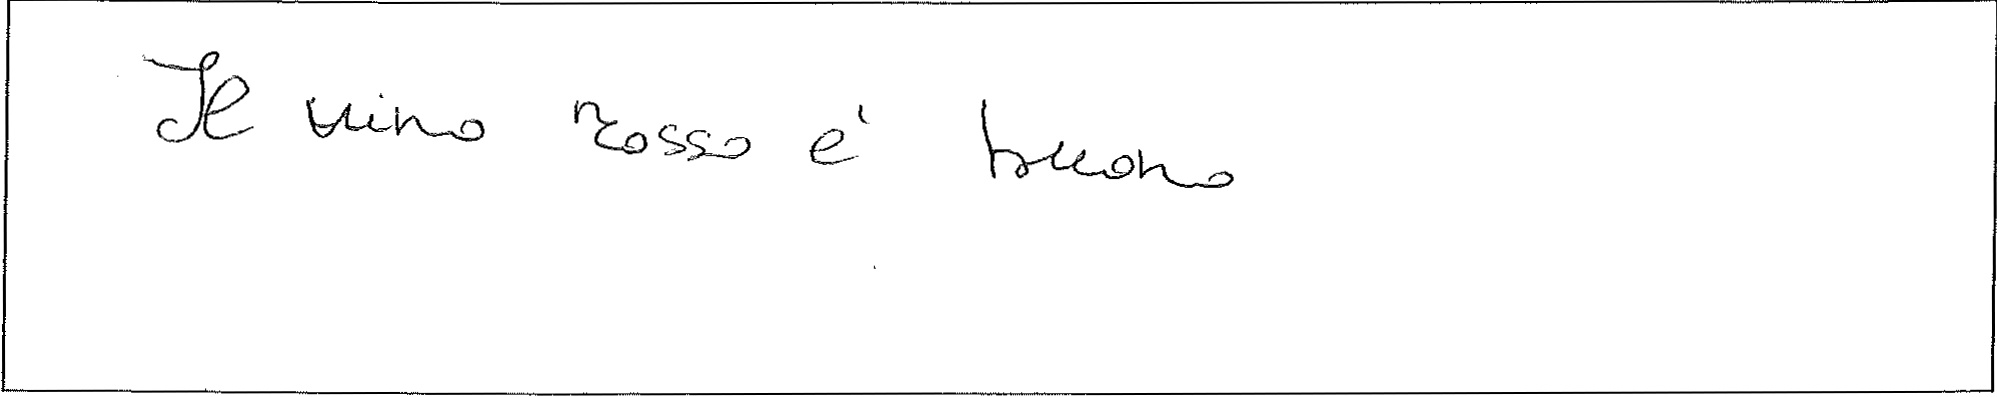 Il vino rosso e' buono